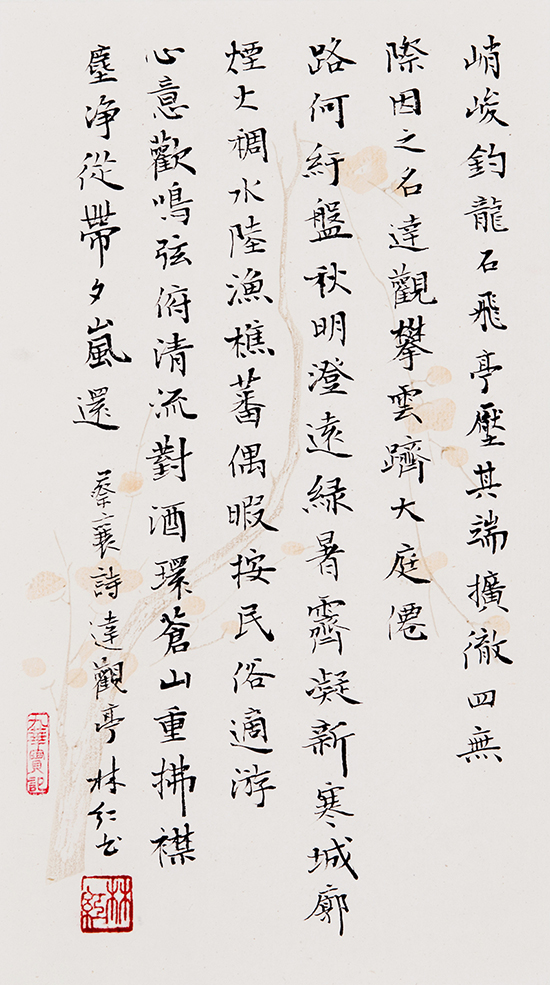 峭峻釣龍石飛亭壓其端擴徹四無
際因之名達觀攀雲躋大庭僊
路何紆盤秋明澄遠綠暑霽凝新寒城廓
煙火稠水陸漁樵蕃偶暇按民俗適游
心意歡鳴弦俯清流對酒環蒼山重拂襟
塵净從帶夕嵐還 蔡襄詩達觀亭 林红书
林紅